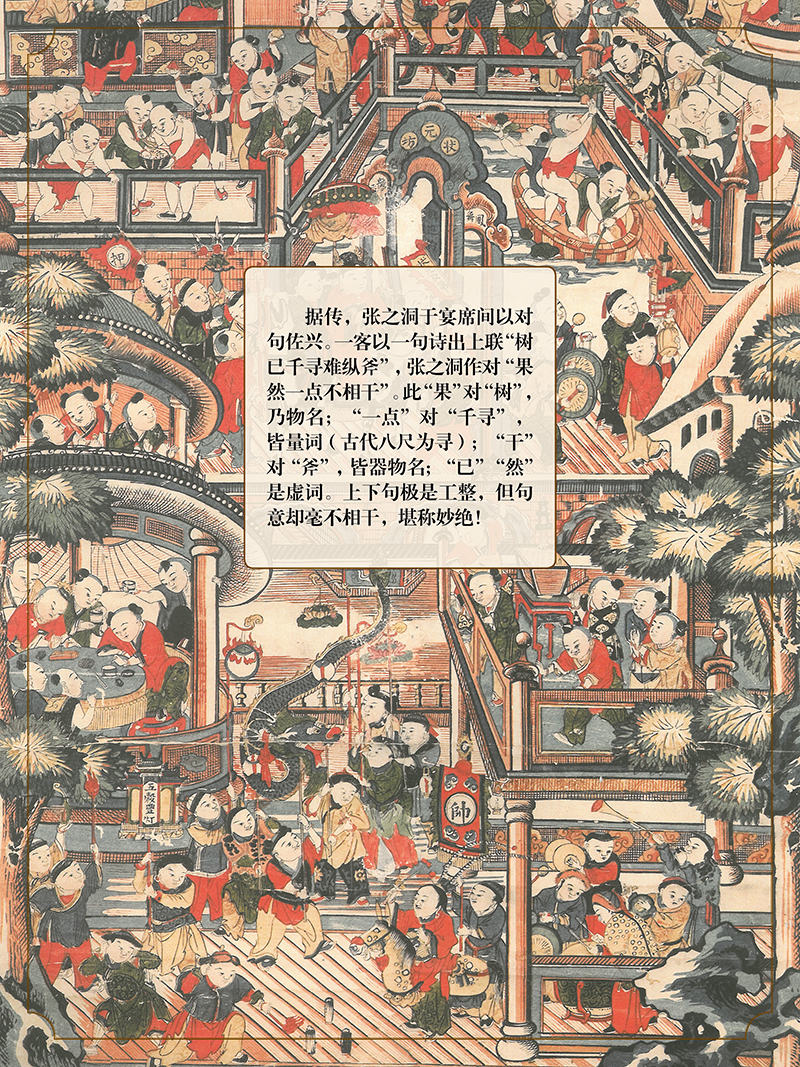 坊元状
押
据传，张之洞于宴席间以对
句佐兴。一客以一句诗出上联“树
已千寻难纵斧”，张之洞作对“果
然一点不相干”。此“果”对“树”，
乃物名；“一点”对“千寻”，
皆量词（古代八尺为寻）；“干”
对“斧”，皆器物名；“已”“然”
是虚词。上下句极是工整，但句
意却毫不相干，堪称妙绝！
帥